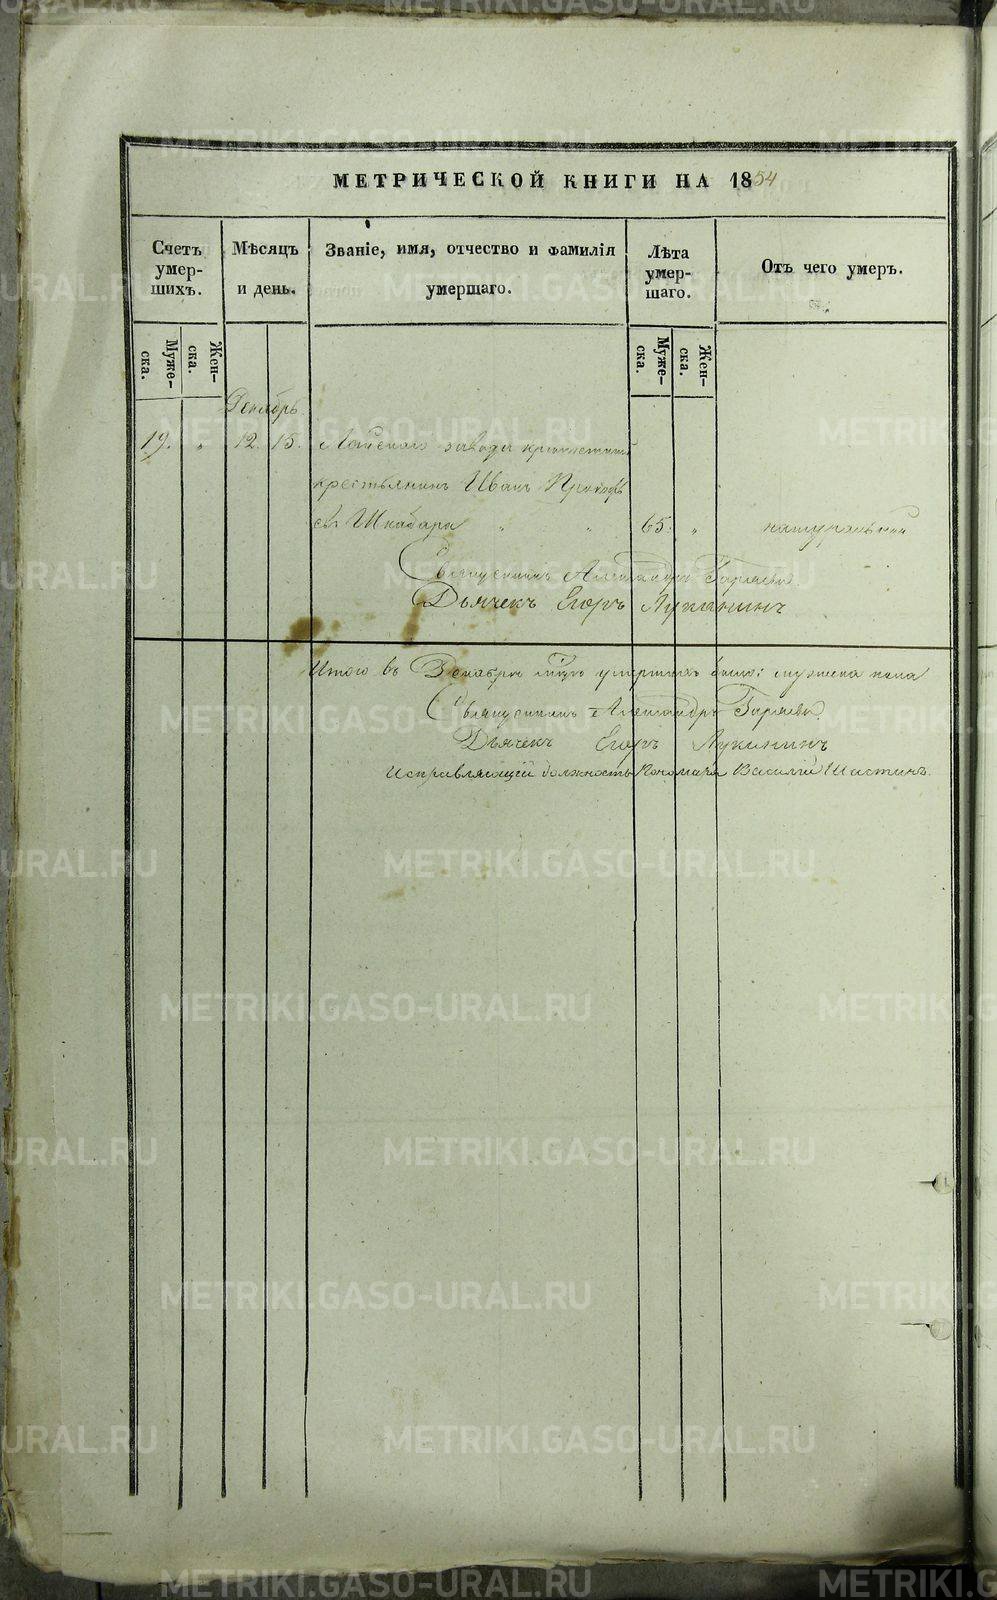 МЕТРИЧЕСКОЙ КНИГИ НА 1854
Счетъ умер-шихъ.
Мѣсяцъ и день.
Званіе, имя, отчество и фамилія умершаго.
Лѣта умер-шаго.
Отъ чего умеръ.
Муже-ска.
Жен-ска.
Муже-ска.
Жен-ска.
Декабрь
19. „ 12. 15. завода
крестьянинъ Иванъ
65. „
Священникъ Александръ
Дьячекъ Егоръ Луканинъ
Итого въ Декабрѣ умершихъ было: мужеска пола
Священникъ Александръ
Дьячекъ Егоръ Луканинъ
Исправляющій должность Пономаря Василій Шастинъ.
METRIKI.GASO-URAL.RU